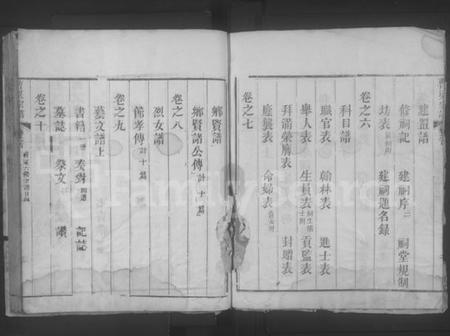 建置譜
修祠記 建祠序二 祠堂規制
坊表 建祠題名錄
卷之六
科目譜
職官表 翰林表 進士表
舉人表 生員表 貢監表
拜滿榮廕表
廕襲表 命婦表 封贈表
卷之七
鄉賢譜
鄉賢諸公傳計十篇
卷之八
烈女譜
節孝傳計十篇
卷之九
藝文譜上
書籍 奏 記誌
墓誌 祭文 讚
卷之十
FamilySearch